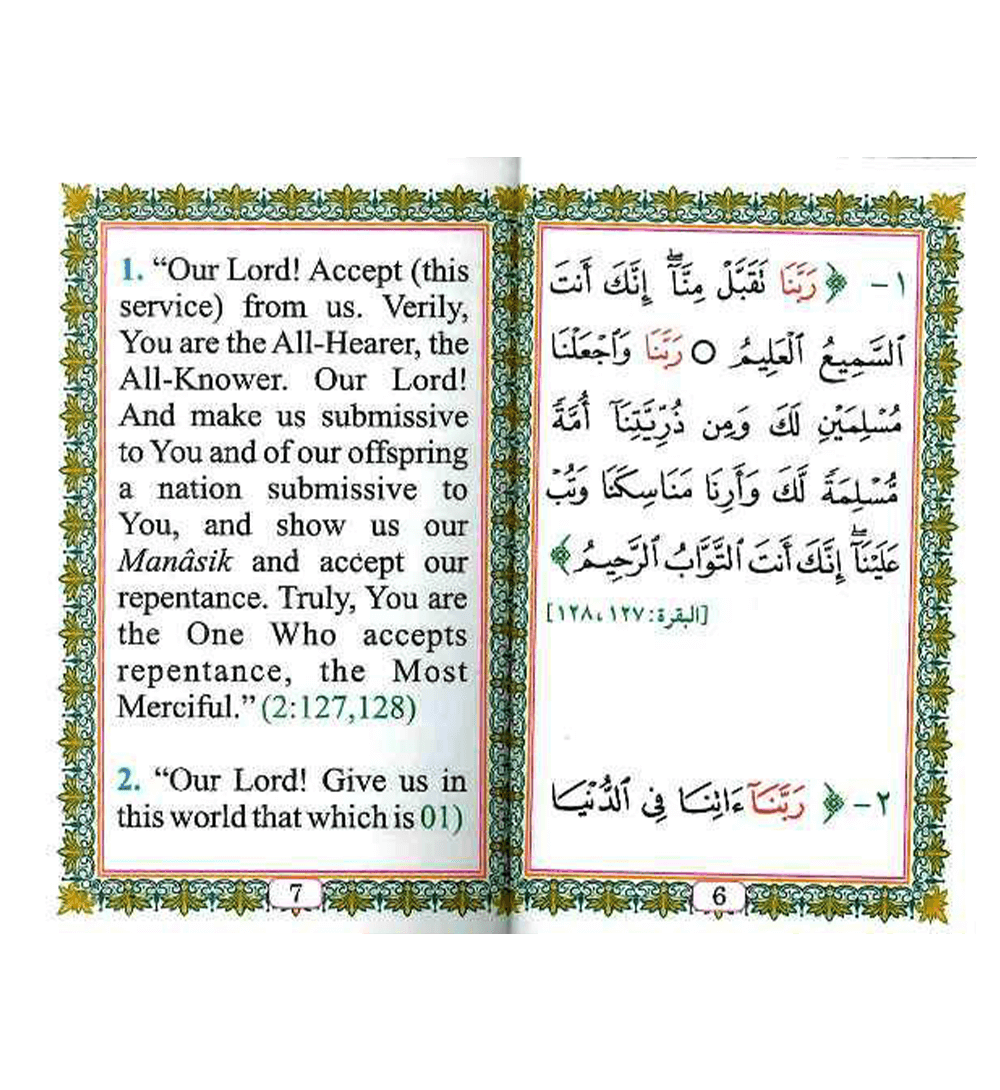 ١- ﴿ رَبَّنَا تَقَبَّلْ مِنَّآ ۖ إِنَّكَ أَنتَ
ٱلسَّمِيعُ ٱلْعَلِيمُ ○ رَبَّنَا وَٱجْعَلْنَا
مُسْلِمَيْنِ لَكَ وَمِن ذُرِّيَّتِنَآ أُمَّةً
مُّسْلِمَةً لَّكَ وَأَرِنَا مَنَاسِكَنَا وَتُبْ
عَلَيْنَآ ۖ إِنَّكَ أَنتَ ٱلتَّوَّابُ ٱلرَّحِيمُ ﴾
[البقرة: ١٢٧، ١٢٨]
٢- ﴿ رَبَّنَآ ءَاتِنَا فِى ٱلدُّنْيَا
6
1. “Our Lord! Accept (this
service) from us. Verily,
You are the All-Hearer, the
All-Knower. Our Lord!
And make us submissive
to You and of our offspring
a nation submissive to
You, and show us our
Manâsik and accept our
repentance. Truly, You are
the One Who accepts
repentance, the Most
Merciful.” (2:127,128)
2. “Our Lord! Give us in
this world that which is 01)
7